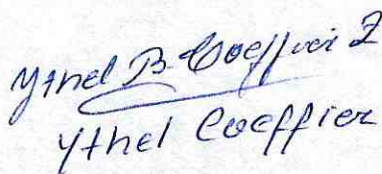 Ythel B. Coeffier Z
Ythel Coeffier